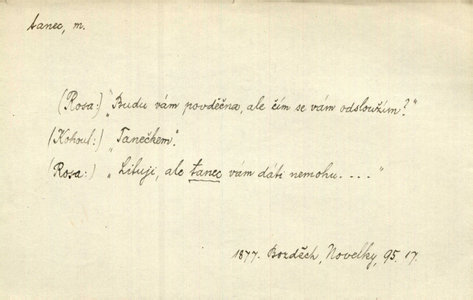 tanec, m.
(Rosa:) "Budu vám povděčna, ale čím se vám odsloužím?"
(Kohout:) „Tanečkem".
(Rosa:) „Lituji, ale tanec vám dáti nemohu. . . ."
1877. Bozděch, Novelky, 95. 17.